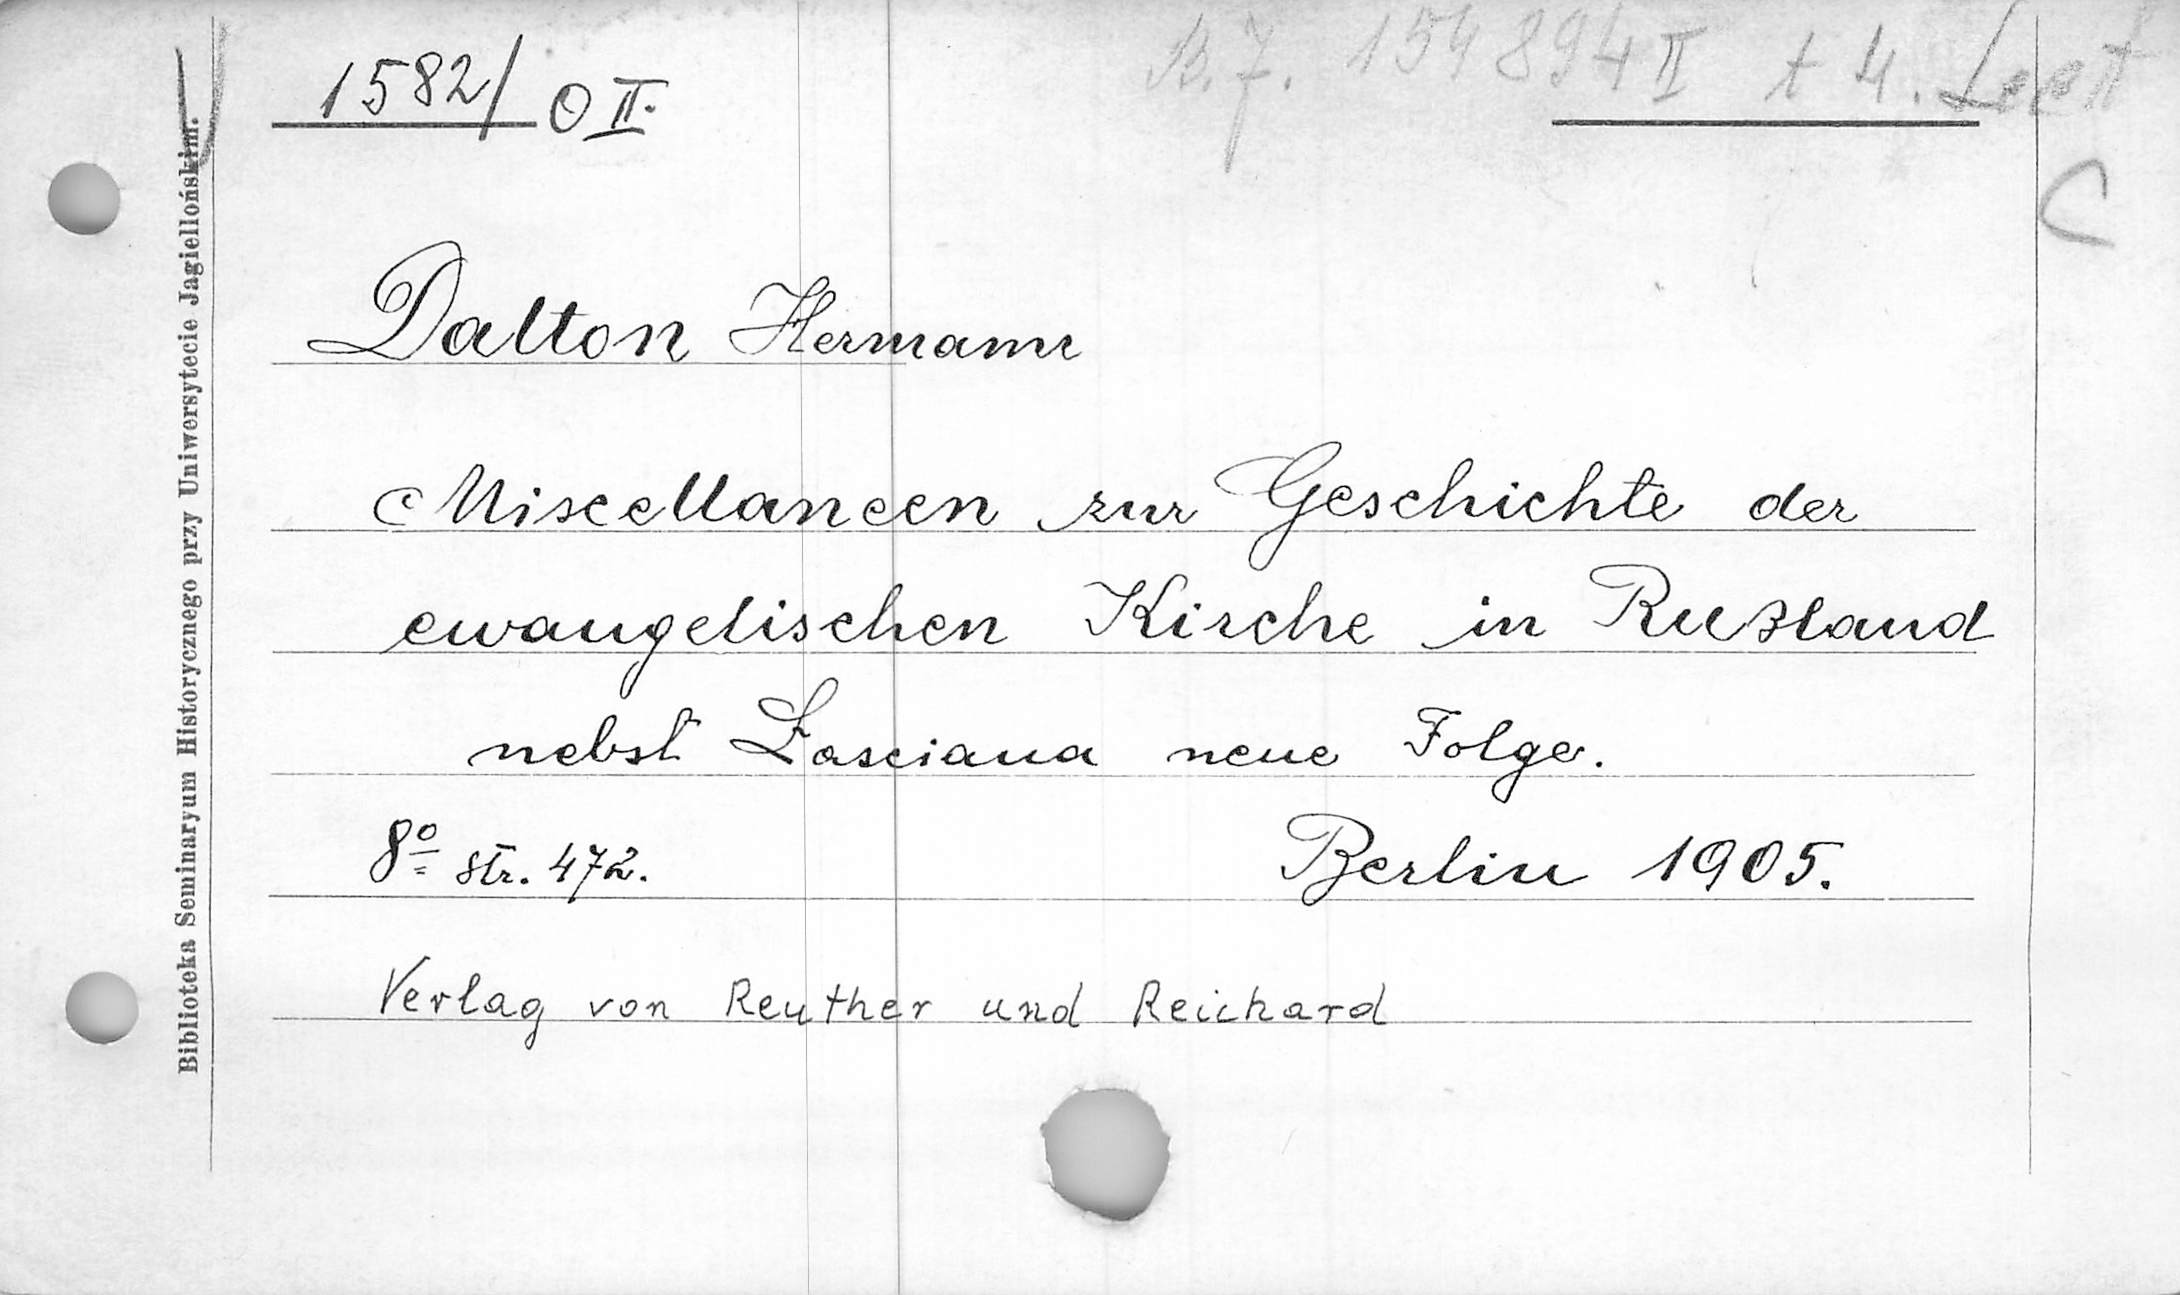 1582/ O II.
B.J. 154894 II t 4.
C
Dalton Hermann
Miscellaneen zur Geschichte der
ewangelischen Kirche in Rußland
nebst Lasciana neue Folge.
8º str. 472. Berlin 1905.
Verlag von Reuther und Reichard
Biblioteka Seminaryum Historycznego przy Uniwersytecie Jagiellońskim.